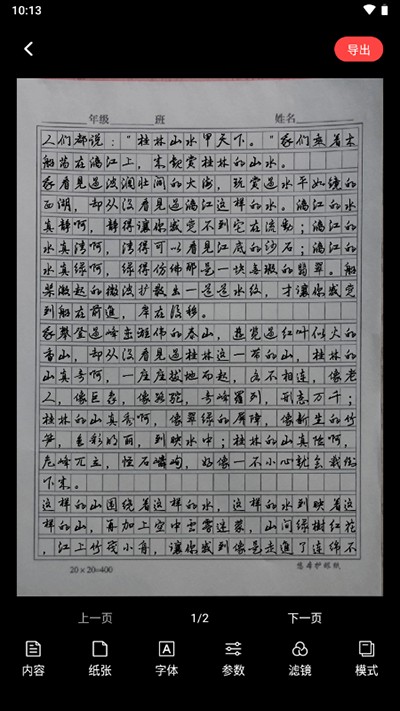 10:13
导出
年级 班 姓名
人们都说："桂林山水甲天下。"我们乘着木
船荡在漓江上，来觀赏桂林的山水。
我看見過波澜壮阔的大海，玩赏過水平如镜的
西湖，却从没看見過漓江这样的水。漓江的水
真静啊，静得讓你感觉不到它在流動；漓江的
水真清啊，清得可以看見江底的沙石；漓江的
水真绿啊，绿得仿佛那是一块無瑕的翡翠。船
桨激起的微波扩散出一道道水纹，才讓你感觉
到船在前進，岸在後移。
我攀登過峰峦雄伟的泰山，遊览過红叶似火的
香山，却从没看見過桂林这一带的山，桂林的
山真奇啊，一座座拔地而起，各不相连，像老
人，像巨象，像骆驼，奇峰羅列，形态万千；
桂林的山真秀啊，像翠绿的屏障，像新生的竹
笋，色彩明丽，到映水中；桂林的山真险啊，
危峰兀立，怪石嶙峋，好像一不小心就会栽倒
下来。
这样的山围绕着这样的水，这样的水到映着这
样的山，再加上空中雲雾迷蒙，山间绿樹红花
，江上竹筏小舟，讓你感到像是走進了连绵不
20×20=400
上一页 1/2 下一页
内容 纸张 字体 参数 滤镜 模式